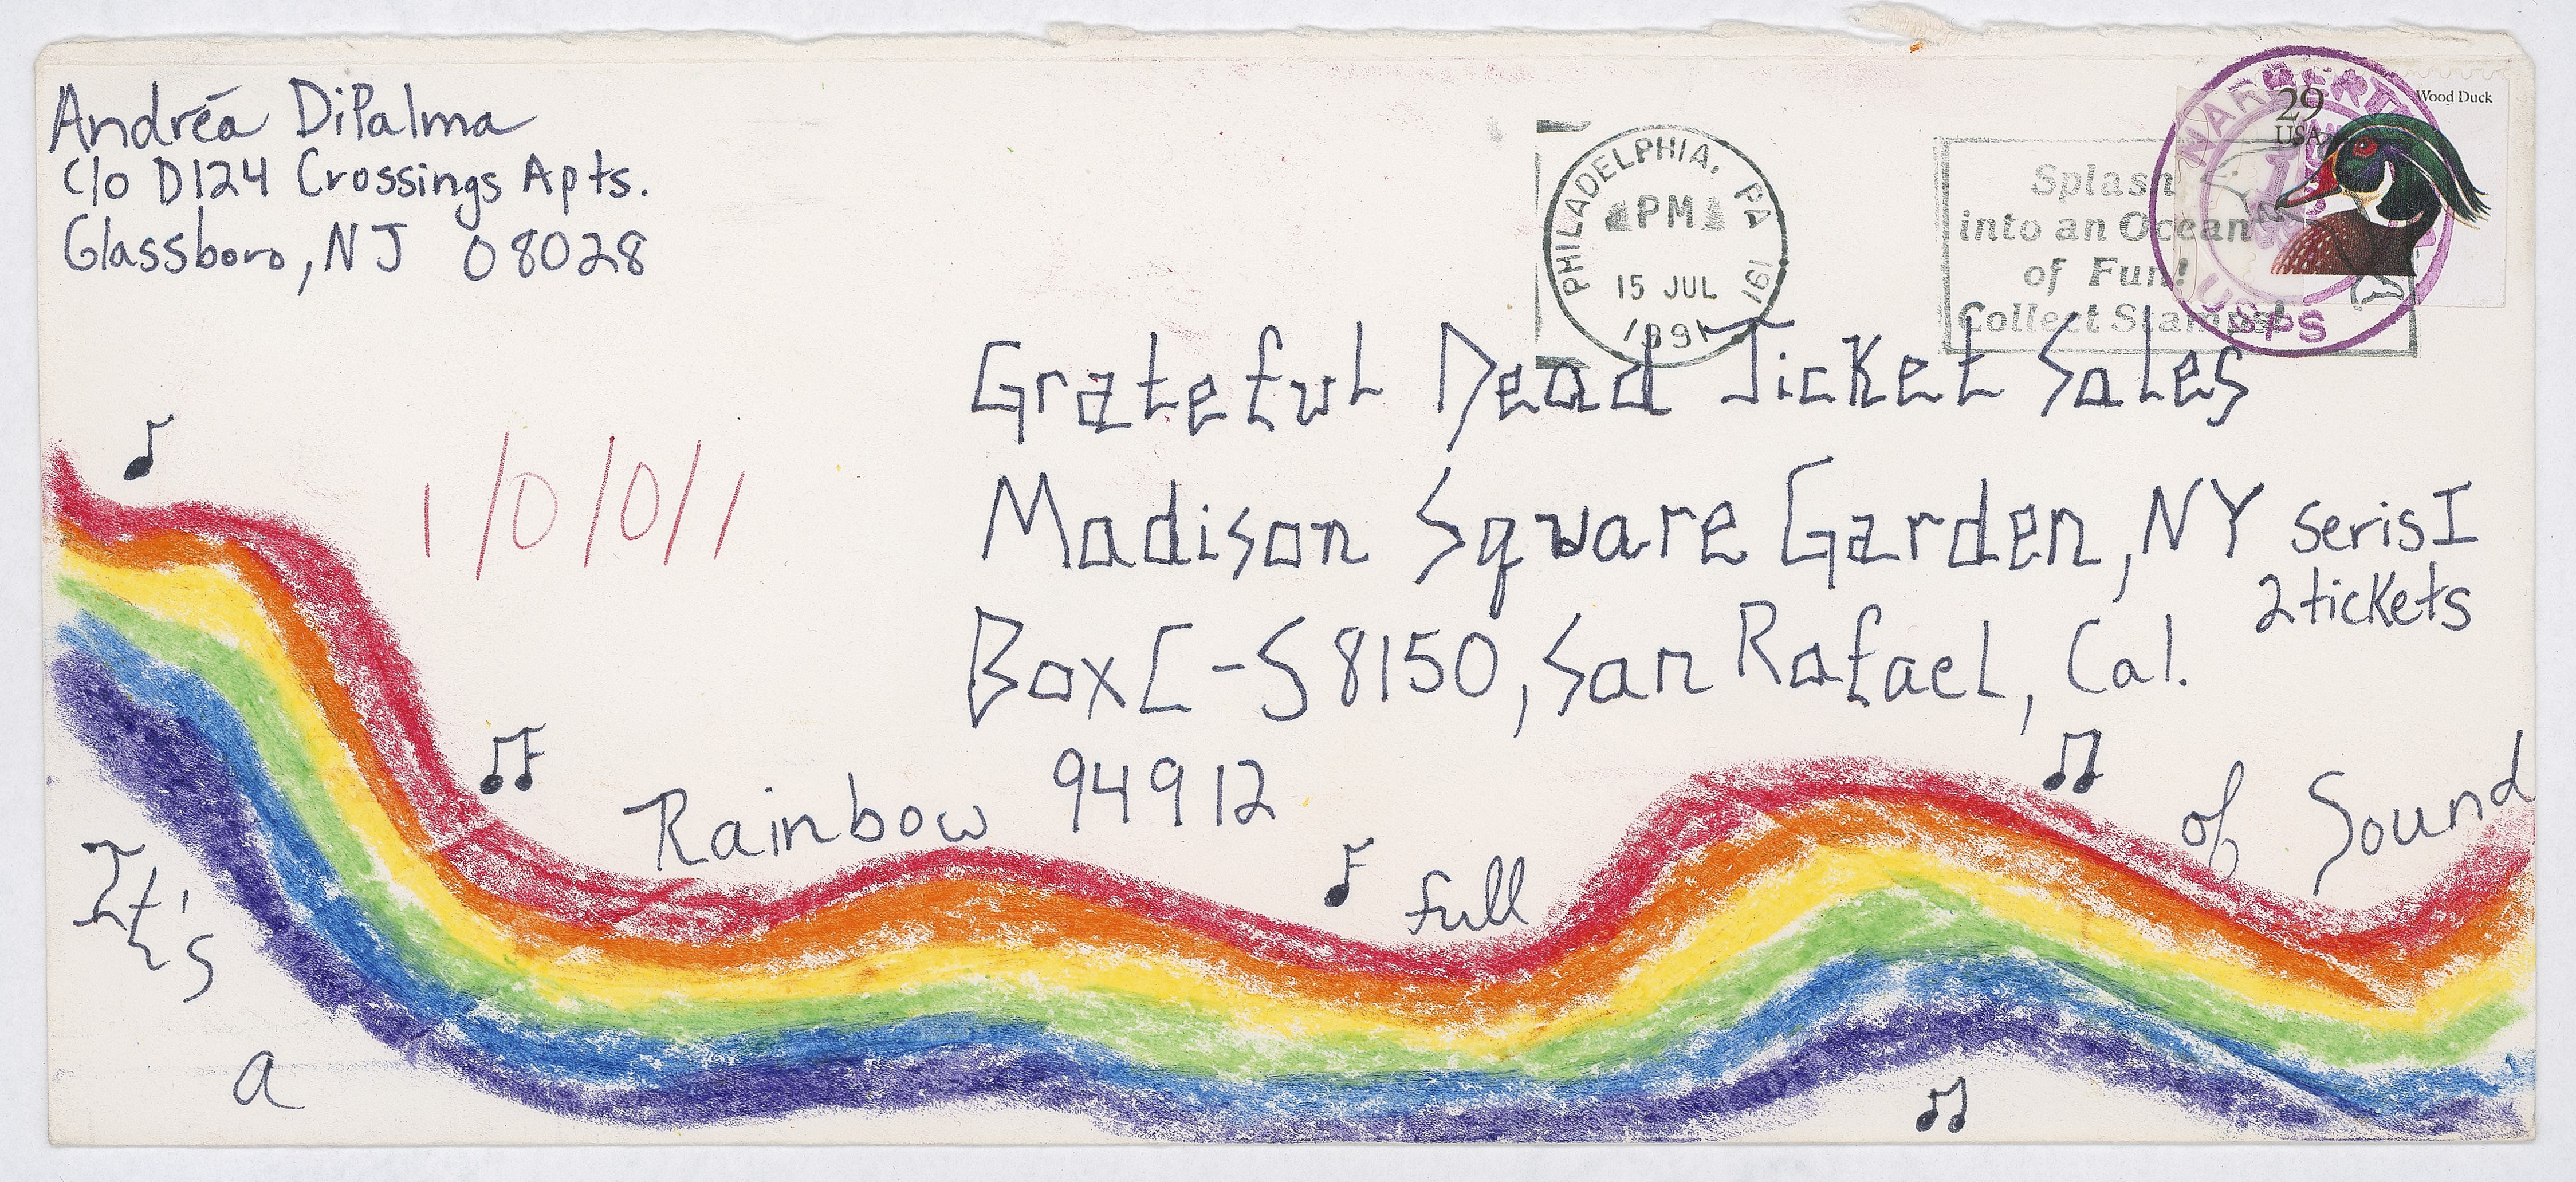 Andréa DiPalma
C/o D124 Crossings Apts.
Glassboro, NJ 08028
PHILADELPHIA, PA 191
PM
15 JUL
1991
Splash
into an Ocean
of Fun!
Collect Stamps!
29
USA
Wood Duck
USPS
Grateful Dead Ticket Sales
Madison Square Garden, NY
seris I
2 tickets
Box C-S 8150, San Rafael, Cal.
94912
1/0/0/1
It's
a
Rainbow
full
of Sound